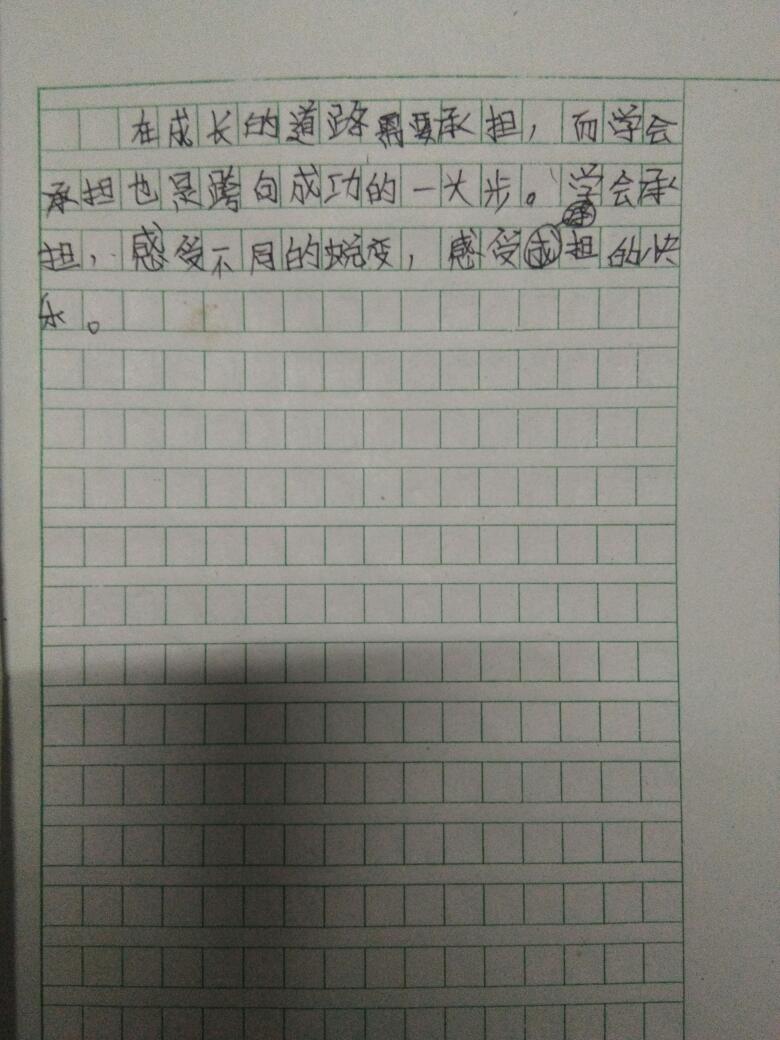 在成长的道路需要承担，而学会
承担也是跨向成功的一大步。学会承
担，感受不同的蜕变，感受承担的快
乐。